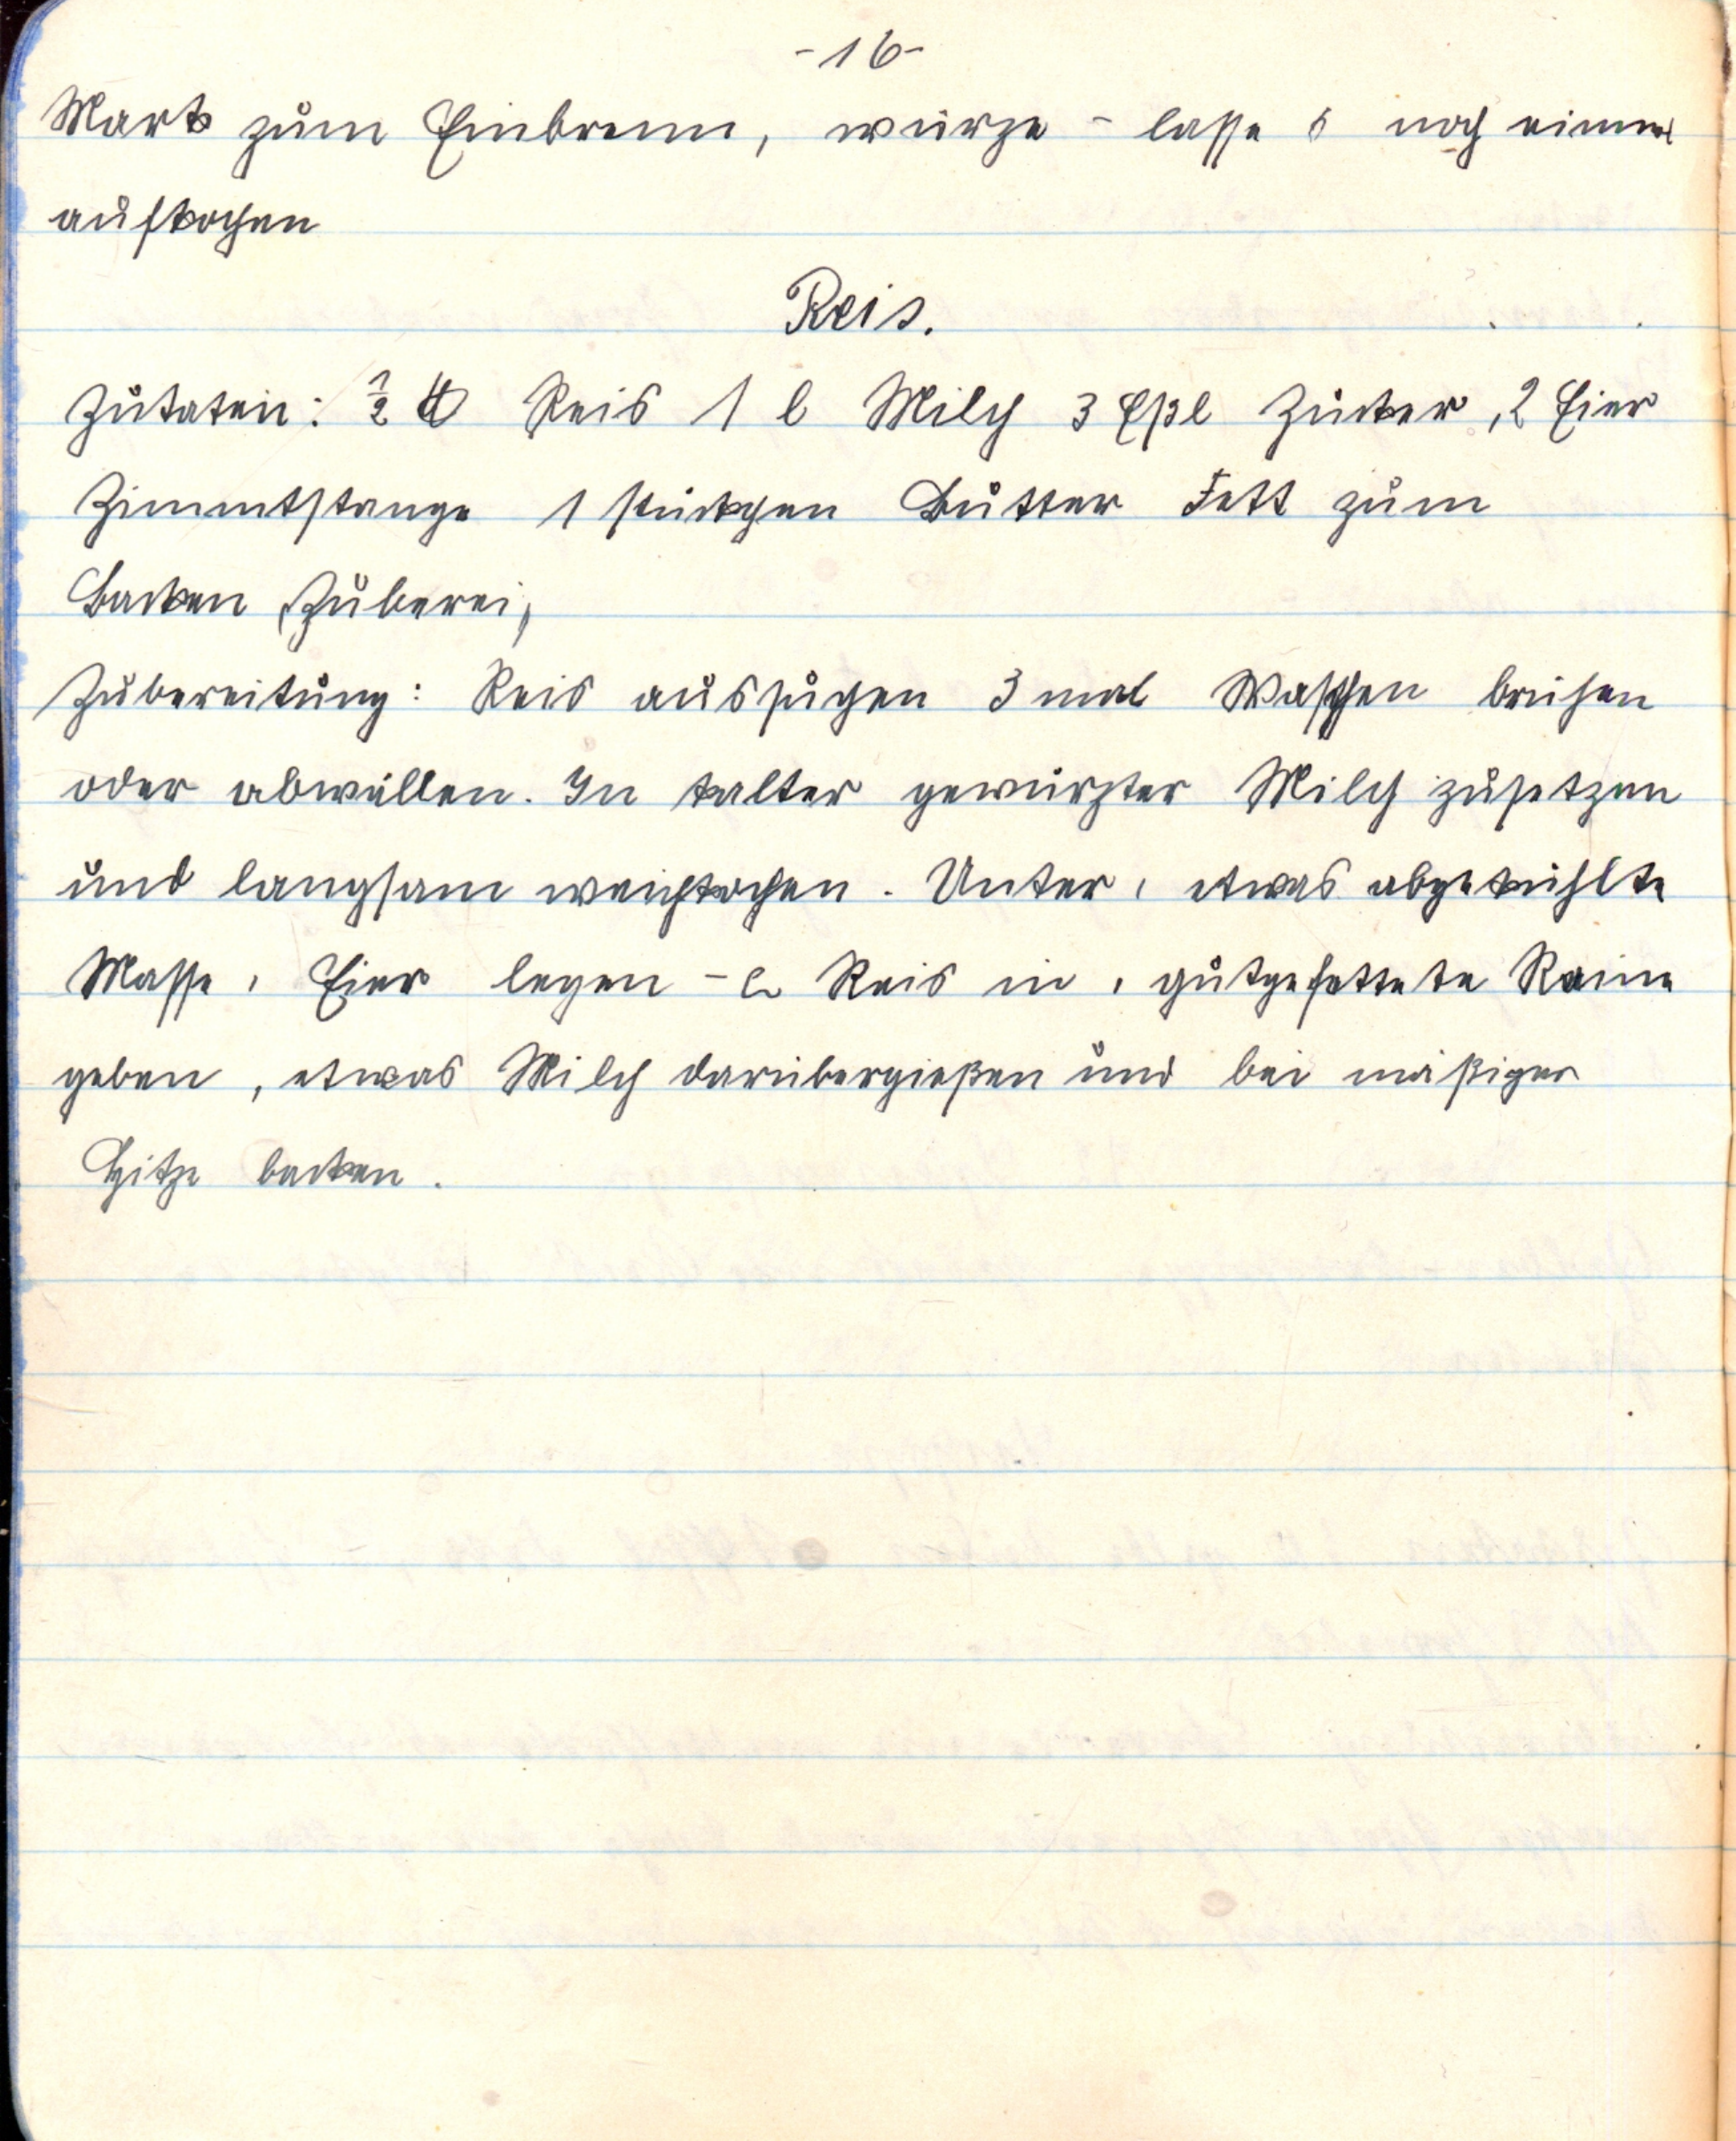 -16-
Mark zum Einbrenn, würze - lasse s noch einmal
aufkochen
Reis.
Zutaten: ½ ℔ Reis 1 l Milch 3 Eßl Zucker, 2 Eier
Zimmtstange 1 stückchen Butter Fett zum
Backen (Zuberei,
Zubereitung: Reis aussuchen 3 mal Waschen brühen
oder abwällen. In kalter gewürzter Milch zusetzen
und langsam weichkochen. Unter, etwas abgekühlte
Masse, Eier legen - Reis in, gutgefettete Raine
geben, etwas Milch darübergießen und bei mäßiger
Hitze backen.